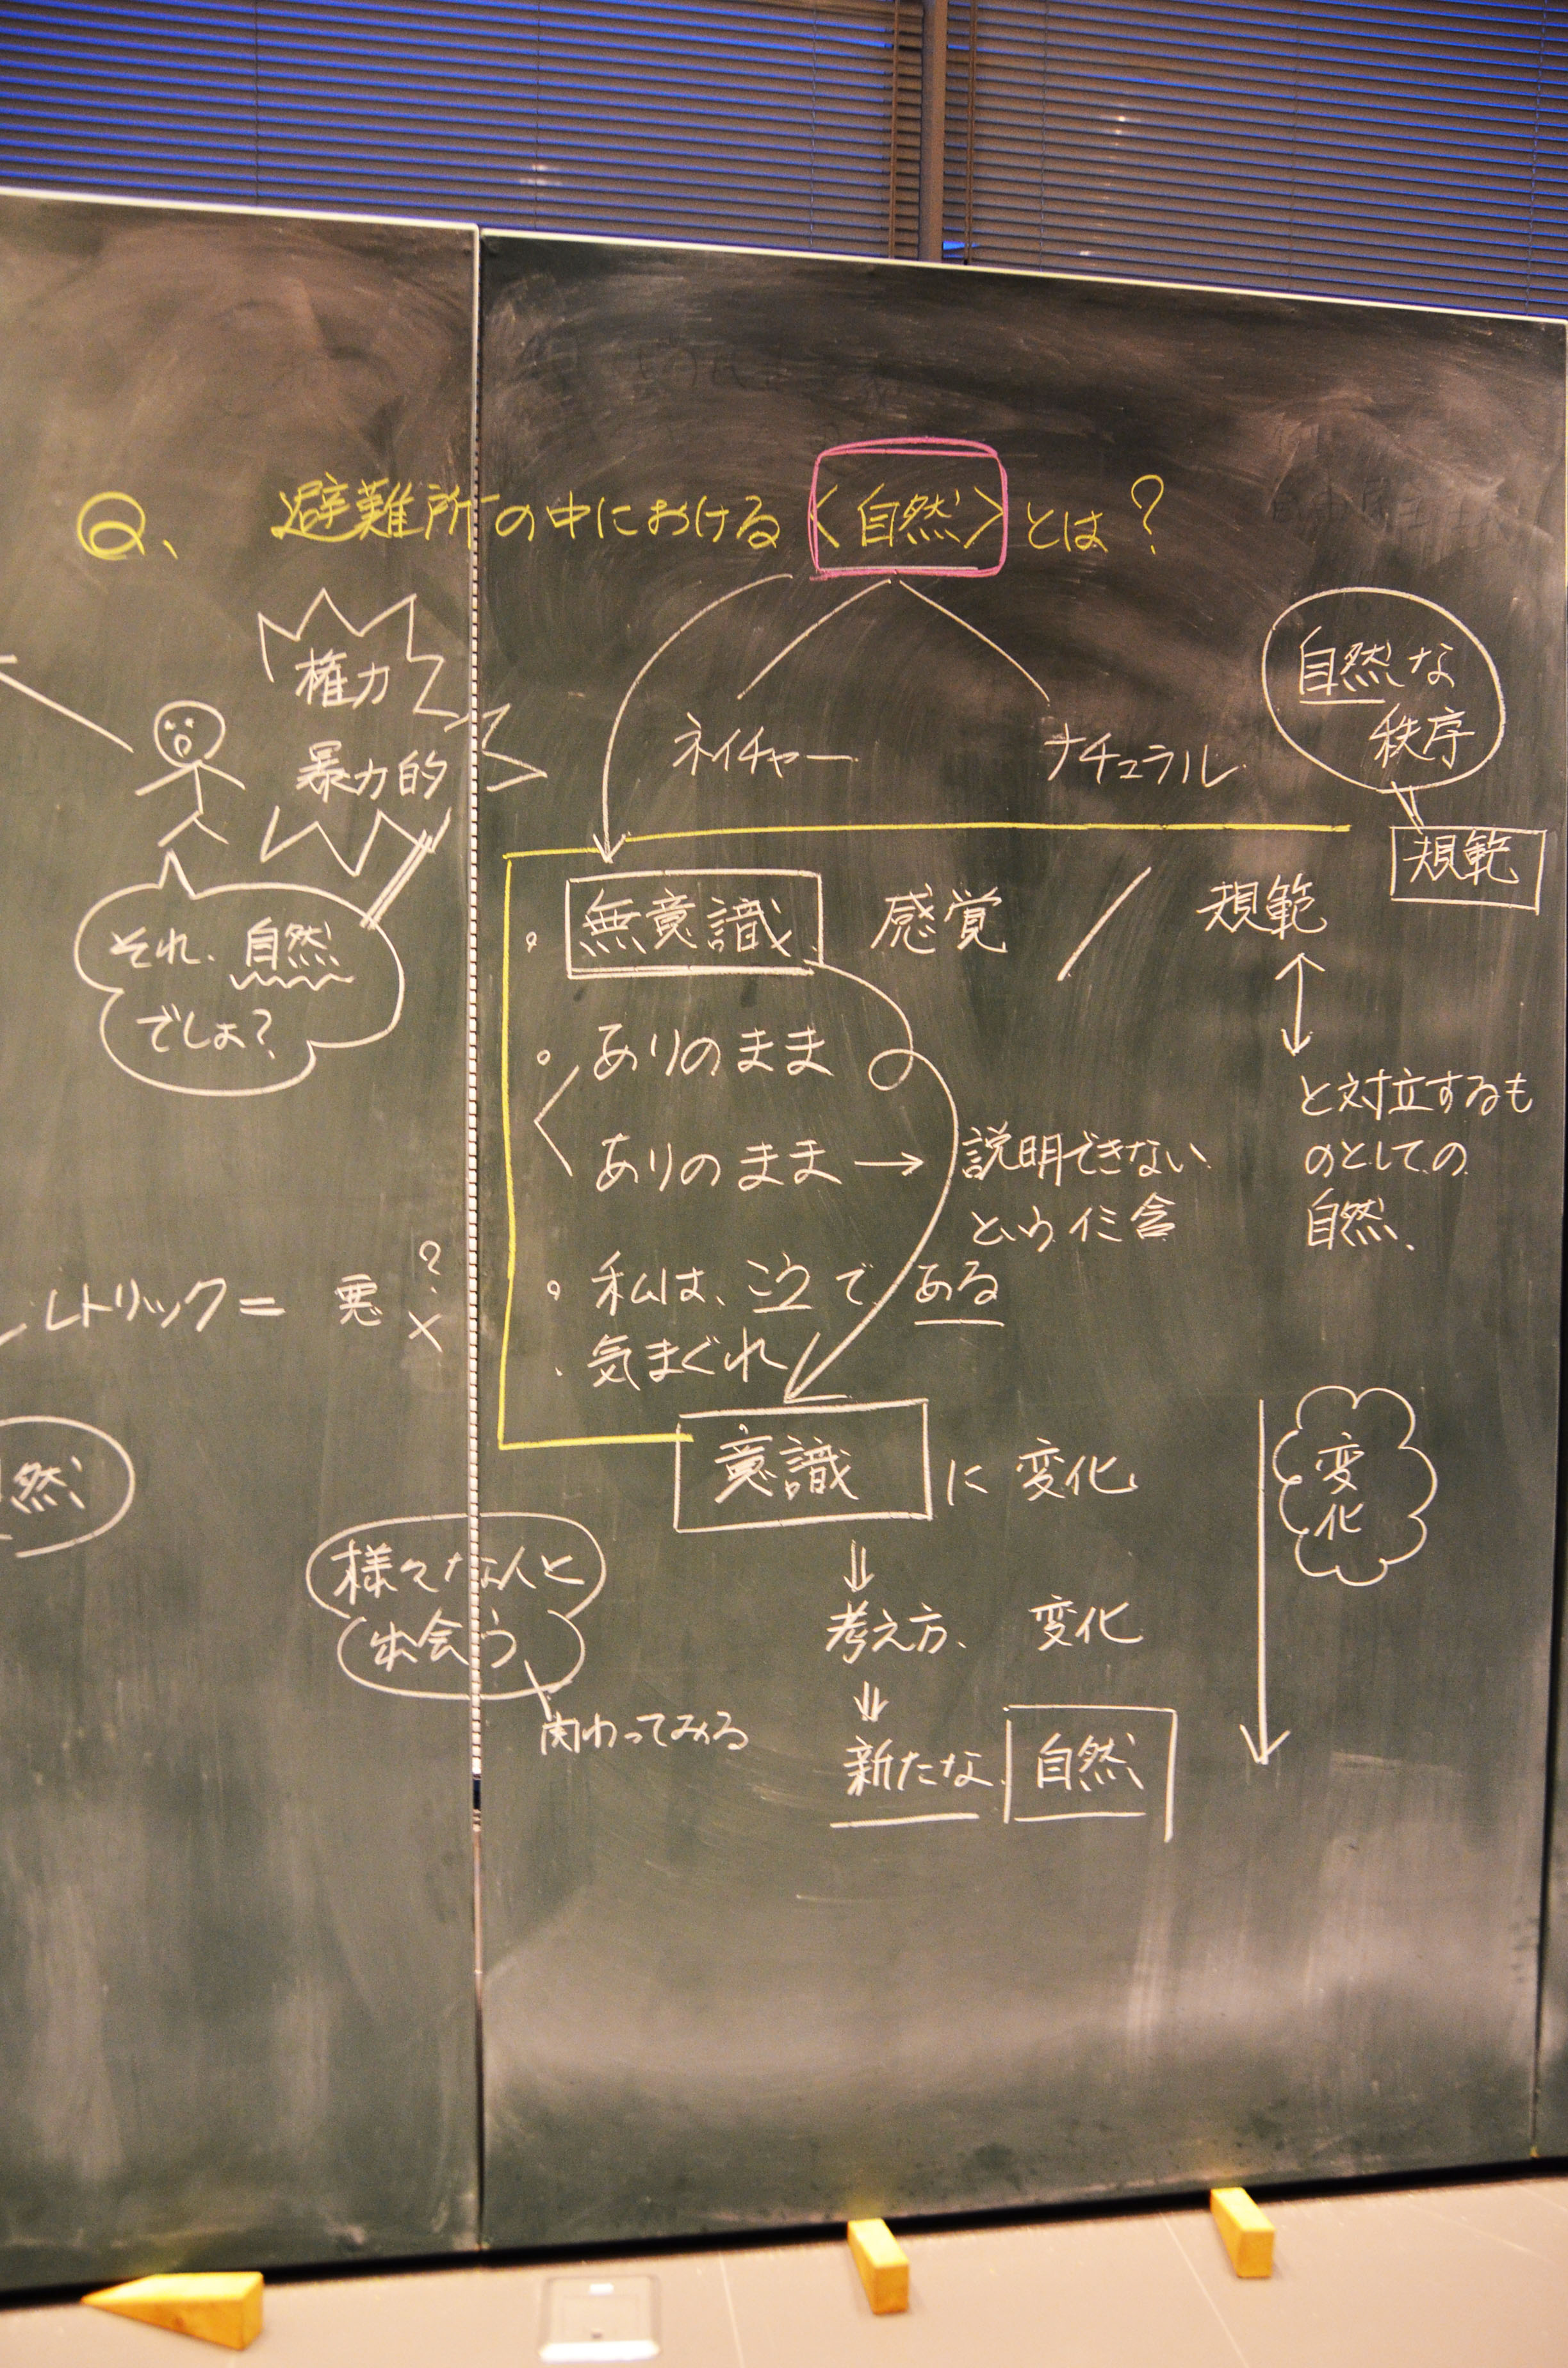 Q、避難所の中における〈自然〉とは?
権力
暴力的
それ、自然
でしょ?
レトリック= 悪?
然
様々な人と
出会う
関わってみる
ネイチャー
ナチュラル
自然な
秩序
規範
無意識 感覚 / 規範
ありのまま
ありのまま → 説明できない
という
と対立するも
のとしての
自然、
私は、こうである
気まぐれ
意識 に 変化
考え方、変化
新たな 自然
変
化